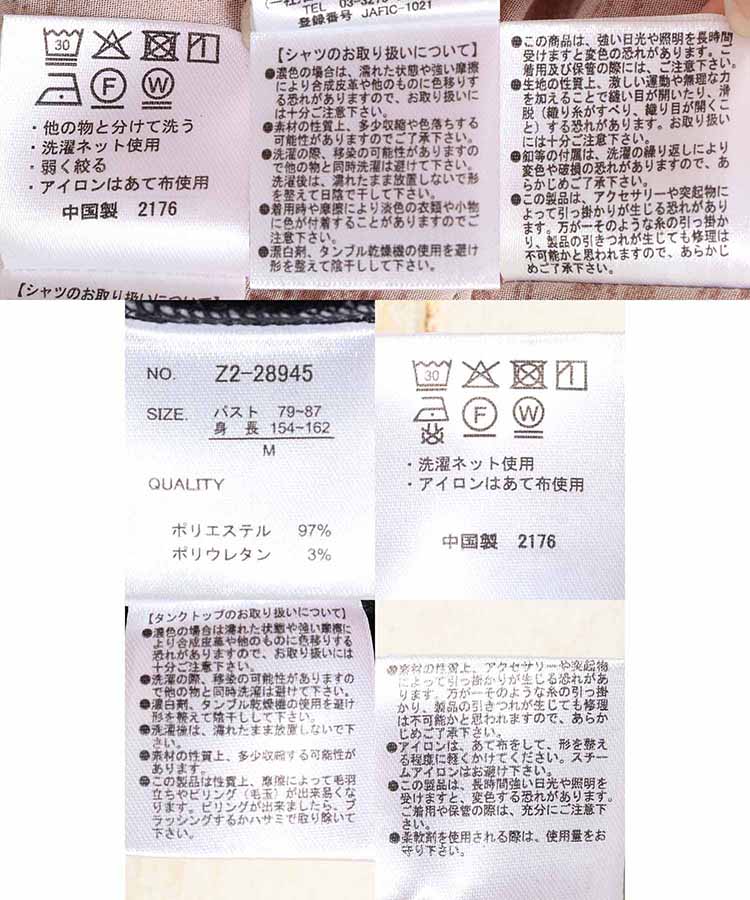 30
F W
・他の物と分けて洗う
・洗濯ネット使用
・弱く絞る
・アイロンはあて布使用
中国製 2176
【シャツのお取り扱いについて】
TEL 03-3275
登録番号 JAFIC-1021
【シャツのお取り扱いについて】
●濃色の場合は、濡れた状態や強い摩擦
により合成皮革や他のものに色移りす
る恐れがありますので、お取り扱いに
は十分ご注意下さい。
●素材の性質上、多少収縮や色落ちする
可能性がありますのでご了承下さい。
●洗濯の際、移染の可能性があります
ので他の物と同時洗濯は避けて下さい。
洗濯後は、濡れたまま放置しないで形
を整えて日陰で干して下さい。
●着用時や摩擦により淡色の衣類や小物
に色が付着することがありますのでご
注意下さい。
●漂白剤、タンブル乾燥機の使用を避け
形を整えて陰干しして下さい。
●この商品は、強い日光や照明を長時間
受けますと変色の恐れがあります。ご
着用及び保管の際には、ご注意下さい。
●生地の性質上、激しい運動や無理な力
を加えることで縫い目が開いたり、滑
脱（織り糸がすべり、織り目が開くこ
と）する恐れがあります。お取り扱い
には十分ご注意下さい。
●釦等の付属は、洗濯の繰り返しにより
変色や破損の恐れがありますので、あ
らかじめご了承下さい。
●この製品は、アクセサリーや突起物に
よって引っ掛かりが生じる恐れがあり
ます。万が一そのような糸の引っ掛か
り、製品の引きつれが生じても修理は
不可能かと思われますので、あらかじ
めご了承下さい。
NO. Z2-28945
SIZE. バスト 79~87
身 長 154~162
M
QUALITY
ポリエステル 97%
ポリウレタン 3%
30
F W
・洗濯ネット使用
・アイロンはあて布使用
中国製 2176
【タンクトップのお取り扱いについて】
●濃色の場合は濡れた状態や強い摩擦に
より合成皮革や他のものに色移りする
恐れがありますので、お取り扱いには
十分ご注意下さい。
●洗濯の際、移染の可能性がありますの
で他の物と同時洗濯は避けて下さい。
●漂白剤、タンブル乾燥機の使用を避け
形を整えて陰干しして下さい。
●洗濯後は、濡れたまま放置しないで下
さい。
●素材の性質上、多少収縮する可能性が
あります。
●この製品は性質上、摩擦によって毛羽
立ちやピリング（毛玉）が出来易くな
ります。ピリングが出来ましたら、ブ
ラッシングするかハサミで取り除いて
下さい。
●素材の性質上、アクセサリーや突起物
によって引っ掛かりが生じる恐れがあ
ります。万が一そのような糸の引っ掛
かり、製品の引きつれが生じても修理
は不可能かと思われますので、あらか
じめご了承下さい。
●アイロンは、あて布をして、形を整え
る程度に軽くかけてください。スチー
ムアイロンはお避け下さい。
●この製品は、長時間強い日光や照明を
受けますと、変色する恐れがあります。
ご着用や保管の際は、充分にご注意下
さい。
●柔軟剤を使用される際は、使用量をお
守り下さい。